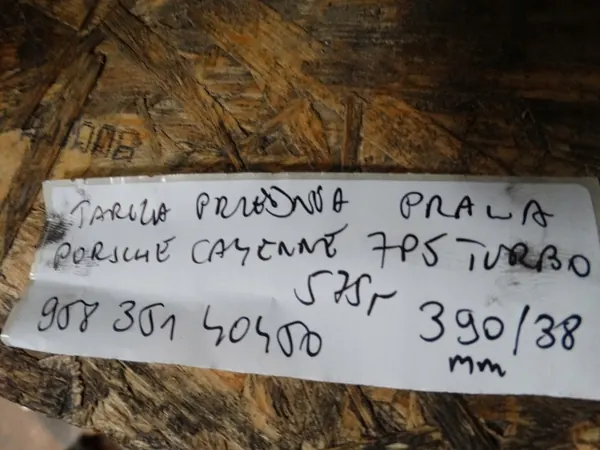 TARCZA PRZEDNIA PRAWA
PORSCHE CAYENNE 7P5 TURBO
958 351 40450
390/38
mm